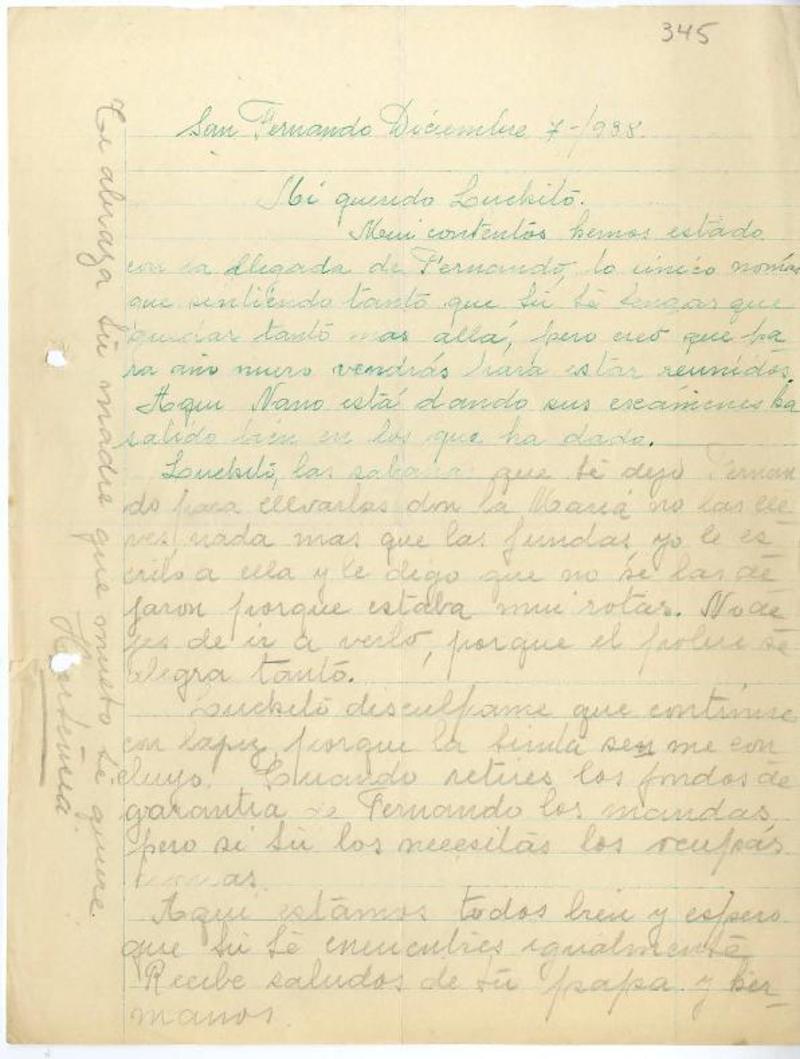 345
San Fernando Diciembre 7-/938.
Mi querido Luchito.
Mui contentos hemos estado
con la llegada de Fernando, lo único nomas
que sintiendo tanto que tú té tengas que
quedar tanto mas allá, pero creo que pa
ra año nuevo vendrás para estar reunidos.
Aqui Nano está dando sus escámenes ha
salido bien en los que ha dado.
Luchito, las sabanas que té dejo Fernan
do para llevarlas don la María no las lle
ves, nada mas que las fundas, yo le es
cribo a ella y le digo que no se las de
jaron porque estaba mui rotas. No de
jes de ir a verlo, porque el pobre se
alegra tanto.
Luchito disculpame que continue
con lapiz, porque la tinta se me con
cluyo. Cuando retires los fondos de
garantia de Fernando los mandas,
pero si tú los necesitas los ocupas
Aqui estámos todos bien y espero
que tú té encuentres igualmente
Recibe saludos de tú papa y her-
manos.
Te abraza tú madre que musto te quiere.
Hortencia